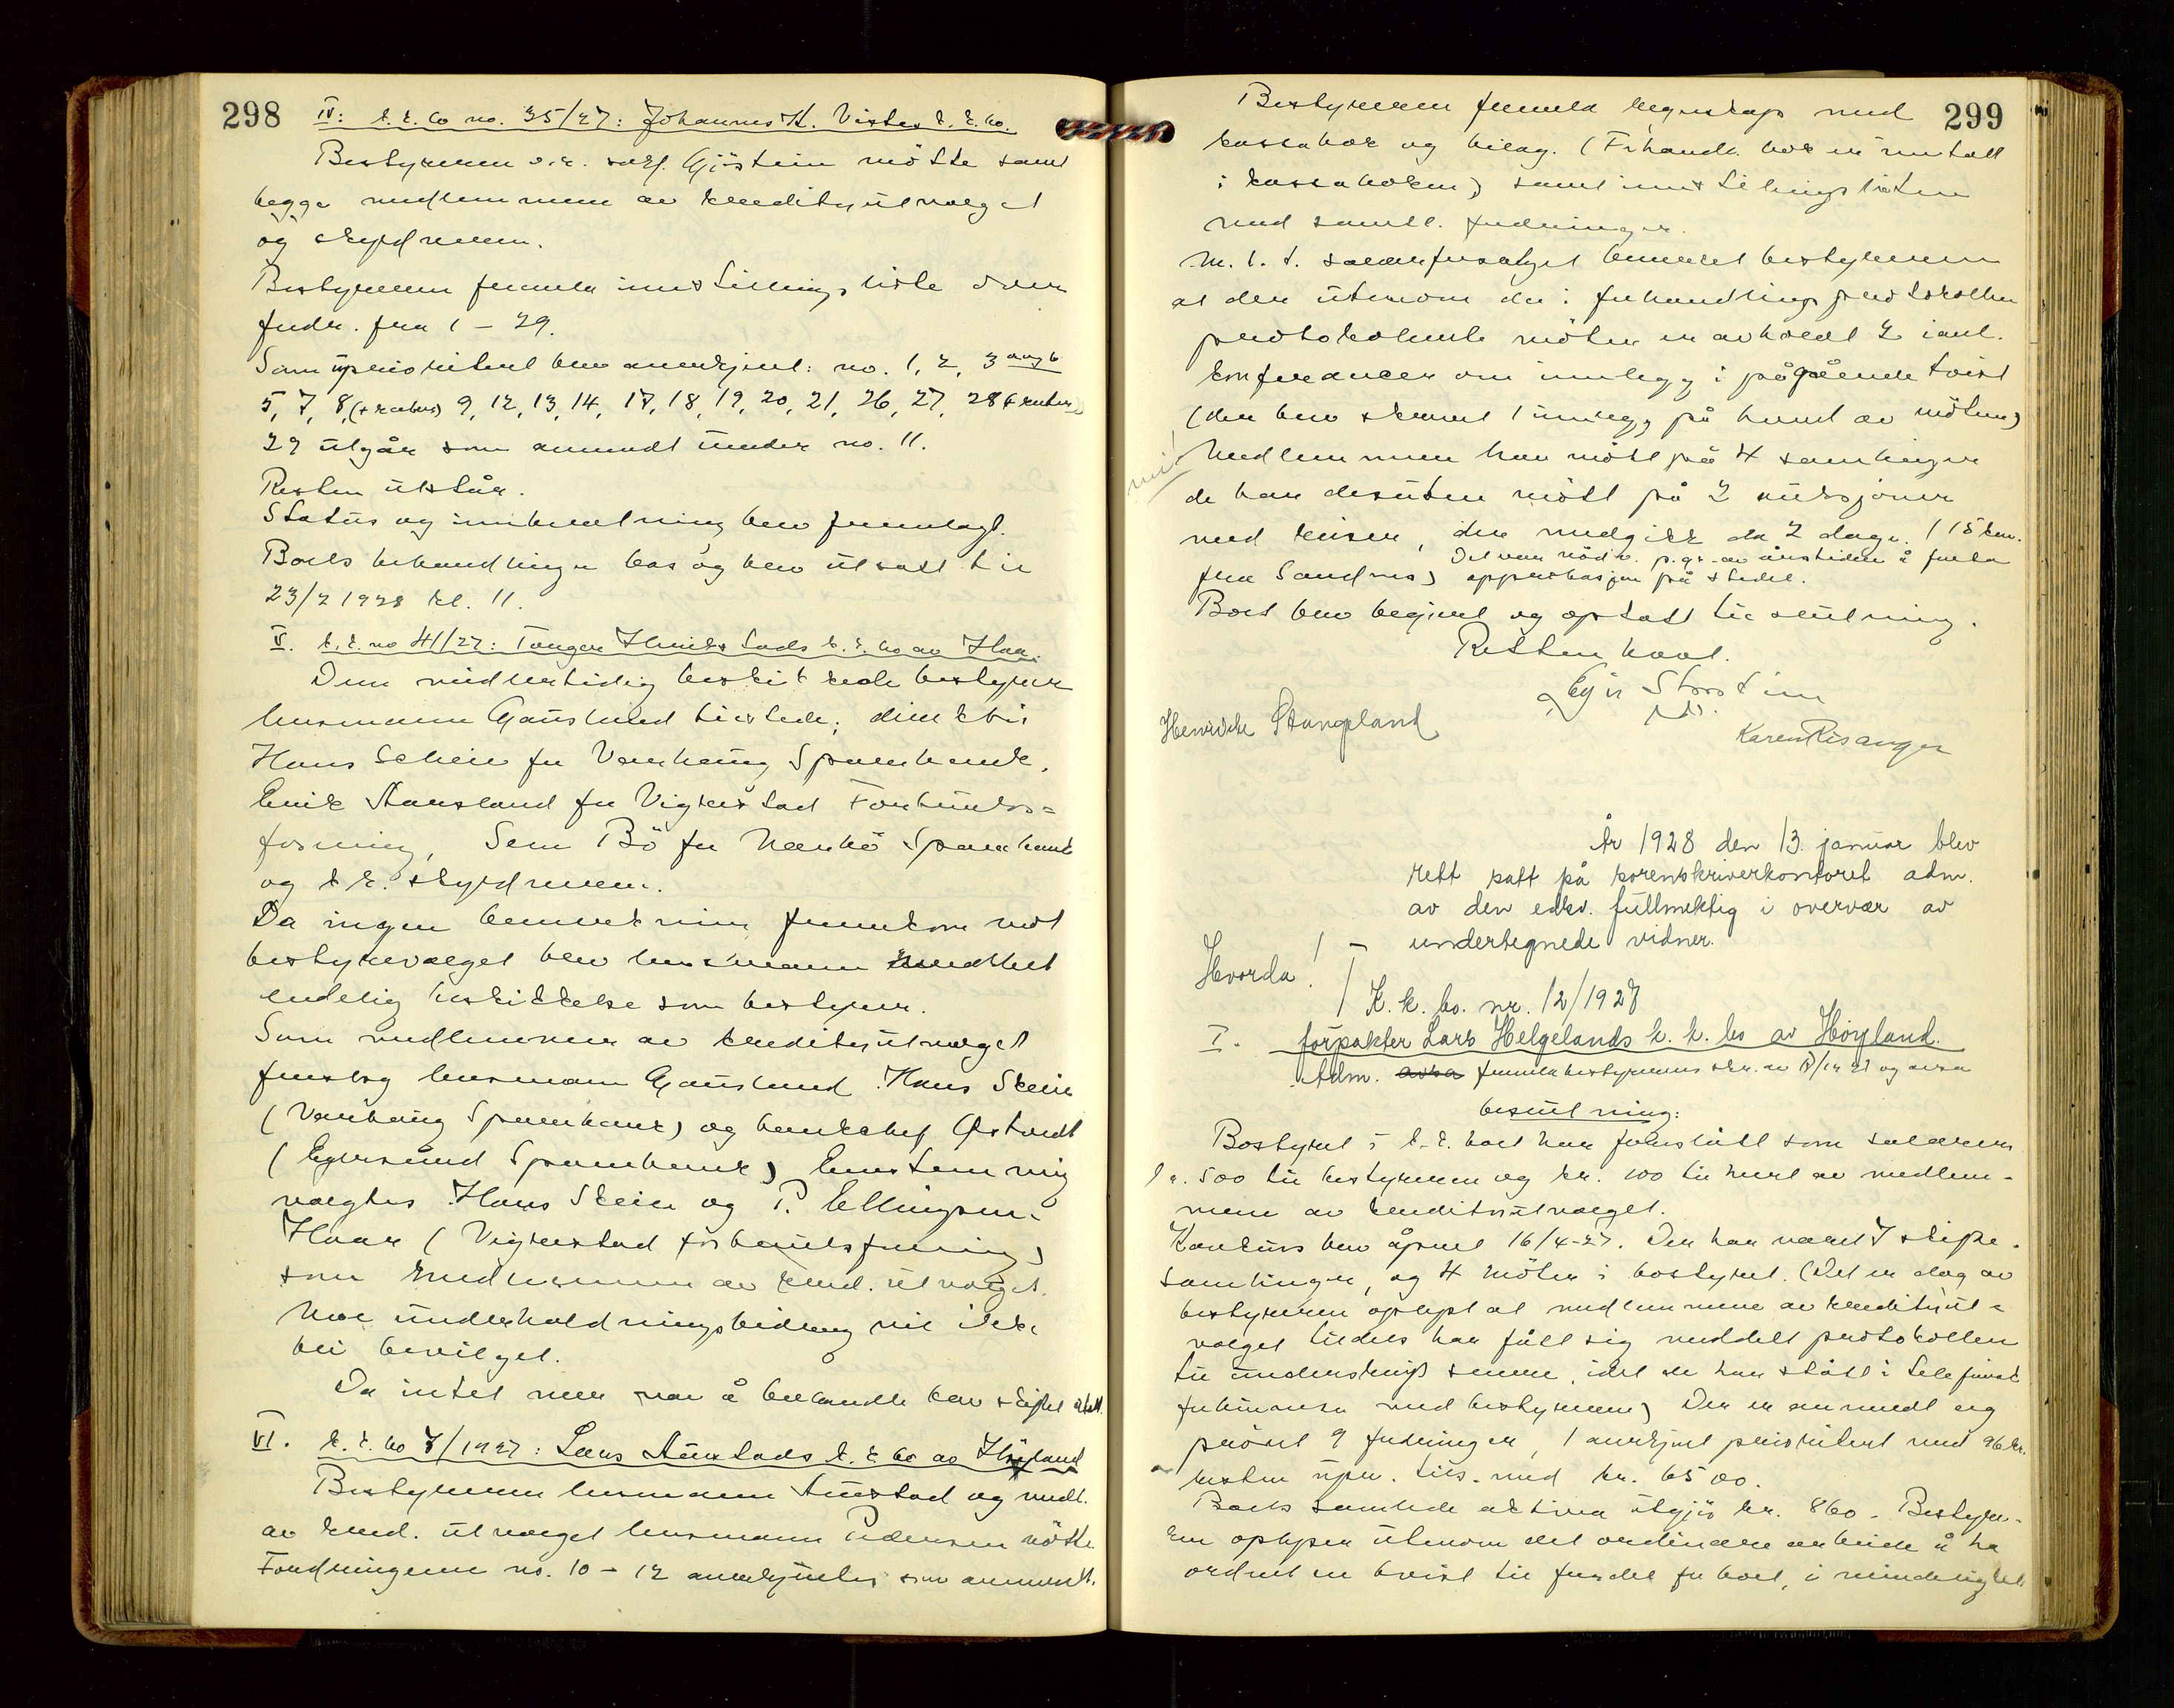 298
IV: k. k. bo no. 35/27: Johannes K. Vistes k. k. bo.
Bestyreren o.r. sakf. Gjöstein mötte samt
begge medlemmene av kreditorutvalget
og skyldneren.
Bestyreren fremla innstillingsliste over
fordr. fra 1 - 29.
Som uprioritert blev anerkjent: no. 1, 2, 3 og 6
5, 7, 8, (+ renter) 9, 12, 13, 14, 17, 18, 19, 20, 21, 26, 27, 28 (+ renter)
29 utgår som anmeldt under no. 11.
Resten utstår.
Status og innberetning blev fremlagt.
Boets behandling blev utsatt til
23/2 1928 kl. 11.
V. k. k. no 41/27: Tanger Hmistads k. k. bo av Haa.
Den midlertidig beskikkede bestyrer
lensmann Gauslund tilstede, direktör
Hans Skeie for Varhaug Sparebank,
Eirik Aarsland for Vigrestad Forbruks=
forening, Sem Bö for Nærbö Sparebank
og k. k. skyldneren.
Da ingen bemerkning fremkom mot
bestyrervalget blev lensmann meddelt
endelig beskikkelse som bestyrer.
Som medlemmer av kreditorutvalget
foreslog lensmann Gauslund Hans Skeie
(Varhaug Sparebank) og banksjef Östvedt
(Egersund Sparebank) Enstemmig
valgtes Hans Skeie og P. Ellingsen
Haar (Vigrestad forbruksforening)
som medlemmer av kred. utvalget.
Noe underholdningsbidrag vil ikke
bli bevilget.
Da intet mer var å behandle blev skiftet utsatt.
VI. k. k. bo 7/1927: Lars Aarstads k. k. bo av Höyland
Bestyreren lensmann Aarstad og medl.
av kred. utvalget lensmann Pedersen mötte
Fordringene no. 10 - 12 anerkjentes som anmeldt.
299
Bestyreren fremla regnskap med
kassabok og bilag. (Forhandl. bok er inntatt
i kassaboken) samt innstillingslisten
med samtl. fordringer.
M. h. t. salærforslaget bemerket bestyreren
at der utenom de i forhandlingsprotokollen
protokollerte möter er avholdt 2 à
konferancer om innlegg i pågående tvist
(der blev skrevet 1 innlegg på hvert av möterne)
Medlemmene har mött på 4 samlinger
de har desuten mött på 2 auksjoner
med reisen, der medgikk da 2 dage. (15 km.
Det var nödv. p.gr. av årstiden å foreta
fra Sandnes) apprebasjon på stedet.
Boet blev begjært og optatt til slutning.
Retten hevet.
Egil Storstein
Henrikke Stangeland
Karen Risanger
År 1928 den 13. januar blev
rett satt på sorenskriverkontoret adm.
av den edsv. fullmektig i overvær av
undertegnede vidner.
Hvorda!
K. k. bo. nr. 12/1927
I. forpakter Lars Helgelands k. k. bo av Höyland.
Adm. fremla bestyrerens skr. av og avsa
beslutning:
Bostyret i k. k. boet har foreslått som salærer
kr. 500 til bestyreren og kr. 100 til hvert av medlem-
mene av kreditorutvalget.
Konkurs blev åpnet 16/4-27. Der har været 7 skifte-
samlinger, og 4 möter i bostyret. (Det er dog av
bestyreren oplyst at medlemmene av kreditorut-
valget tildels har fått sig meddelt protokollen
til underskrift senere, idet de har stått i telefonisk
forbindelse med bestyreren) Der er anmeldt og
prövet 9 fordringer, 1 anerkjent prioritert med 96 kr.
resten upri. tils. med kr. 6500.
Boets samlede aktiva utgjör kr. 860. Bestyre-
ren oplyser utenom det ordinære arbeide å ha
ordnet en tvist til fordel for boet, i mindelighet